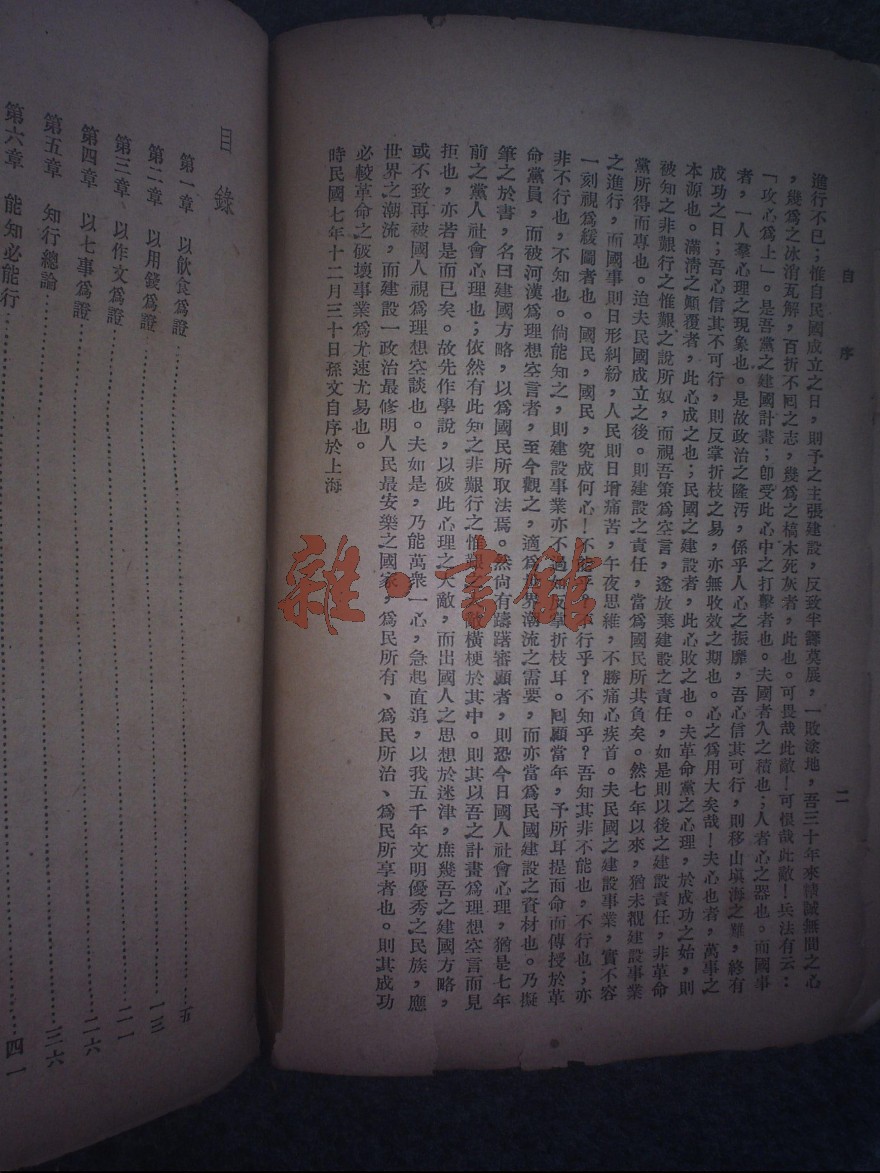 自序
二
進行不已；惟自民國成立之日，則予之主張建設，反致半籌莫展，一敗塗地，吾三十年來精誠無間之心
，幾爲之冰消瓦解，百折不囘之志，幾爲之槁木死灰者，此也。可畏哉此敵！可恨哉此敵！兵法有云：
「攻心爲上」。是吾黨之建國計畫；卽受此心中之打擊者也。夫國者人之積也；人者心之器也。而國事
者，一人羣心理之現象也。是故政治之隆汚，係乎人心之振靡，吾心信其可行，則移山塡海之難，終有
成功之日；吾心信其不可行，則反掌折枝之易，亦無收效之期也。心之爲用大矣哉！夫心也者，萬事之
本源也。滿淸之顚覆者，此心成之也；民國之建設者，此心敗之也。夫革命黨之心理，於成功之始，則
被知之非艱行之惟艱之說所奴，而視吾策爲空言，遂放棄建設之責任，如是則以後之建設責任，非革命
黨所得而專也。迨夫民國成立之後。則建設之責任，當爲國民所共負矣。然七年以來，猶未覩建設事業
之進行，而國事則日形糾紛，人民則日增痛苦，午夜思維，不勝痛心疾首。夫民國之建設事業，實不容
一刻視爲緩圖者也。國民，國民，究成何心！不能乎？不行乎？不知乎？吾知其非不能也，不行也；亦
非不行也，不知也。倘能知之，則建設事業亦不過如反掌折枝耳。囘顧當年，予所耳提而命而傳授於革
命黨員，而被河漢爲理想空言者，至今觀之，適爲世界潮流之需要，而亦當爲民國建設之資材也。乃擬
筆之於書，名曰建國方略，以爲國民所取法焉。然尙有躊躇審顧者，則恐今日國人社會心理，猶是七年
前之黨人社會心理也；依然有此知之非艱行之惟艱之大敵橫梗於其中。則其以吾之計畫爲理想空言而見
拒也，亦若是而已矣。故先作學說，以破此心理之大敵，而出國人之思想於迷津，庶幾吾之建國方略，
或不致再被國人視爲理想空談也。夫如是，乃能萬衆一心，急起直追，以我五千年文明優秀之民族，應
世界之潮流，而建設一政治最修明人民最安樂之國家，爲民所有、爲民所治、爲民所享者也。則其成功
必較革命之破壞事業爲尤速尤易也。
時民國七年十二月三十日孫文自序於上海
目錄
第一章 以飮食爲證……五
第二章 以用錢爲證……一三
第三章 以作文爲證……二一
第四章 以七事爲證……二六
第五章 知行總論……三六
第六章 能知必能行……四一
雜·書館